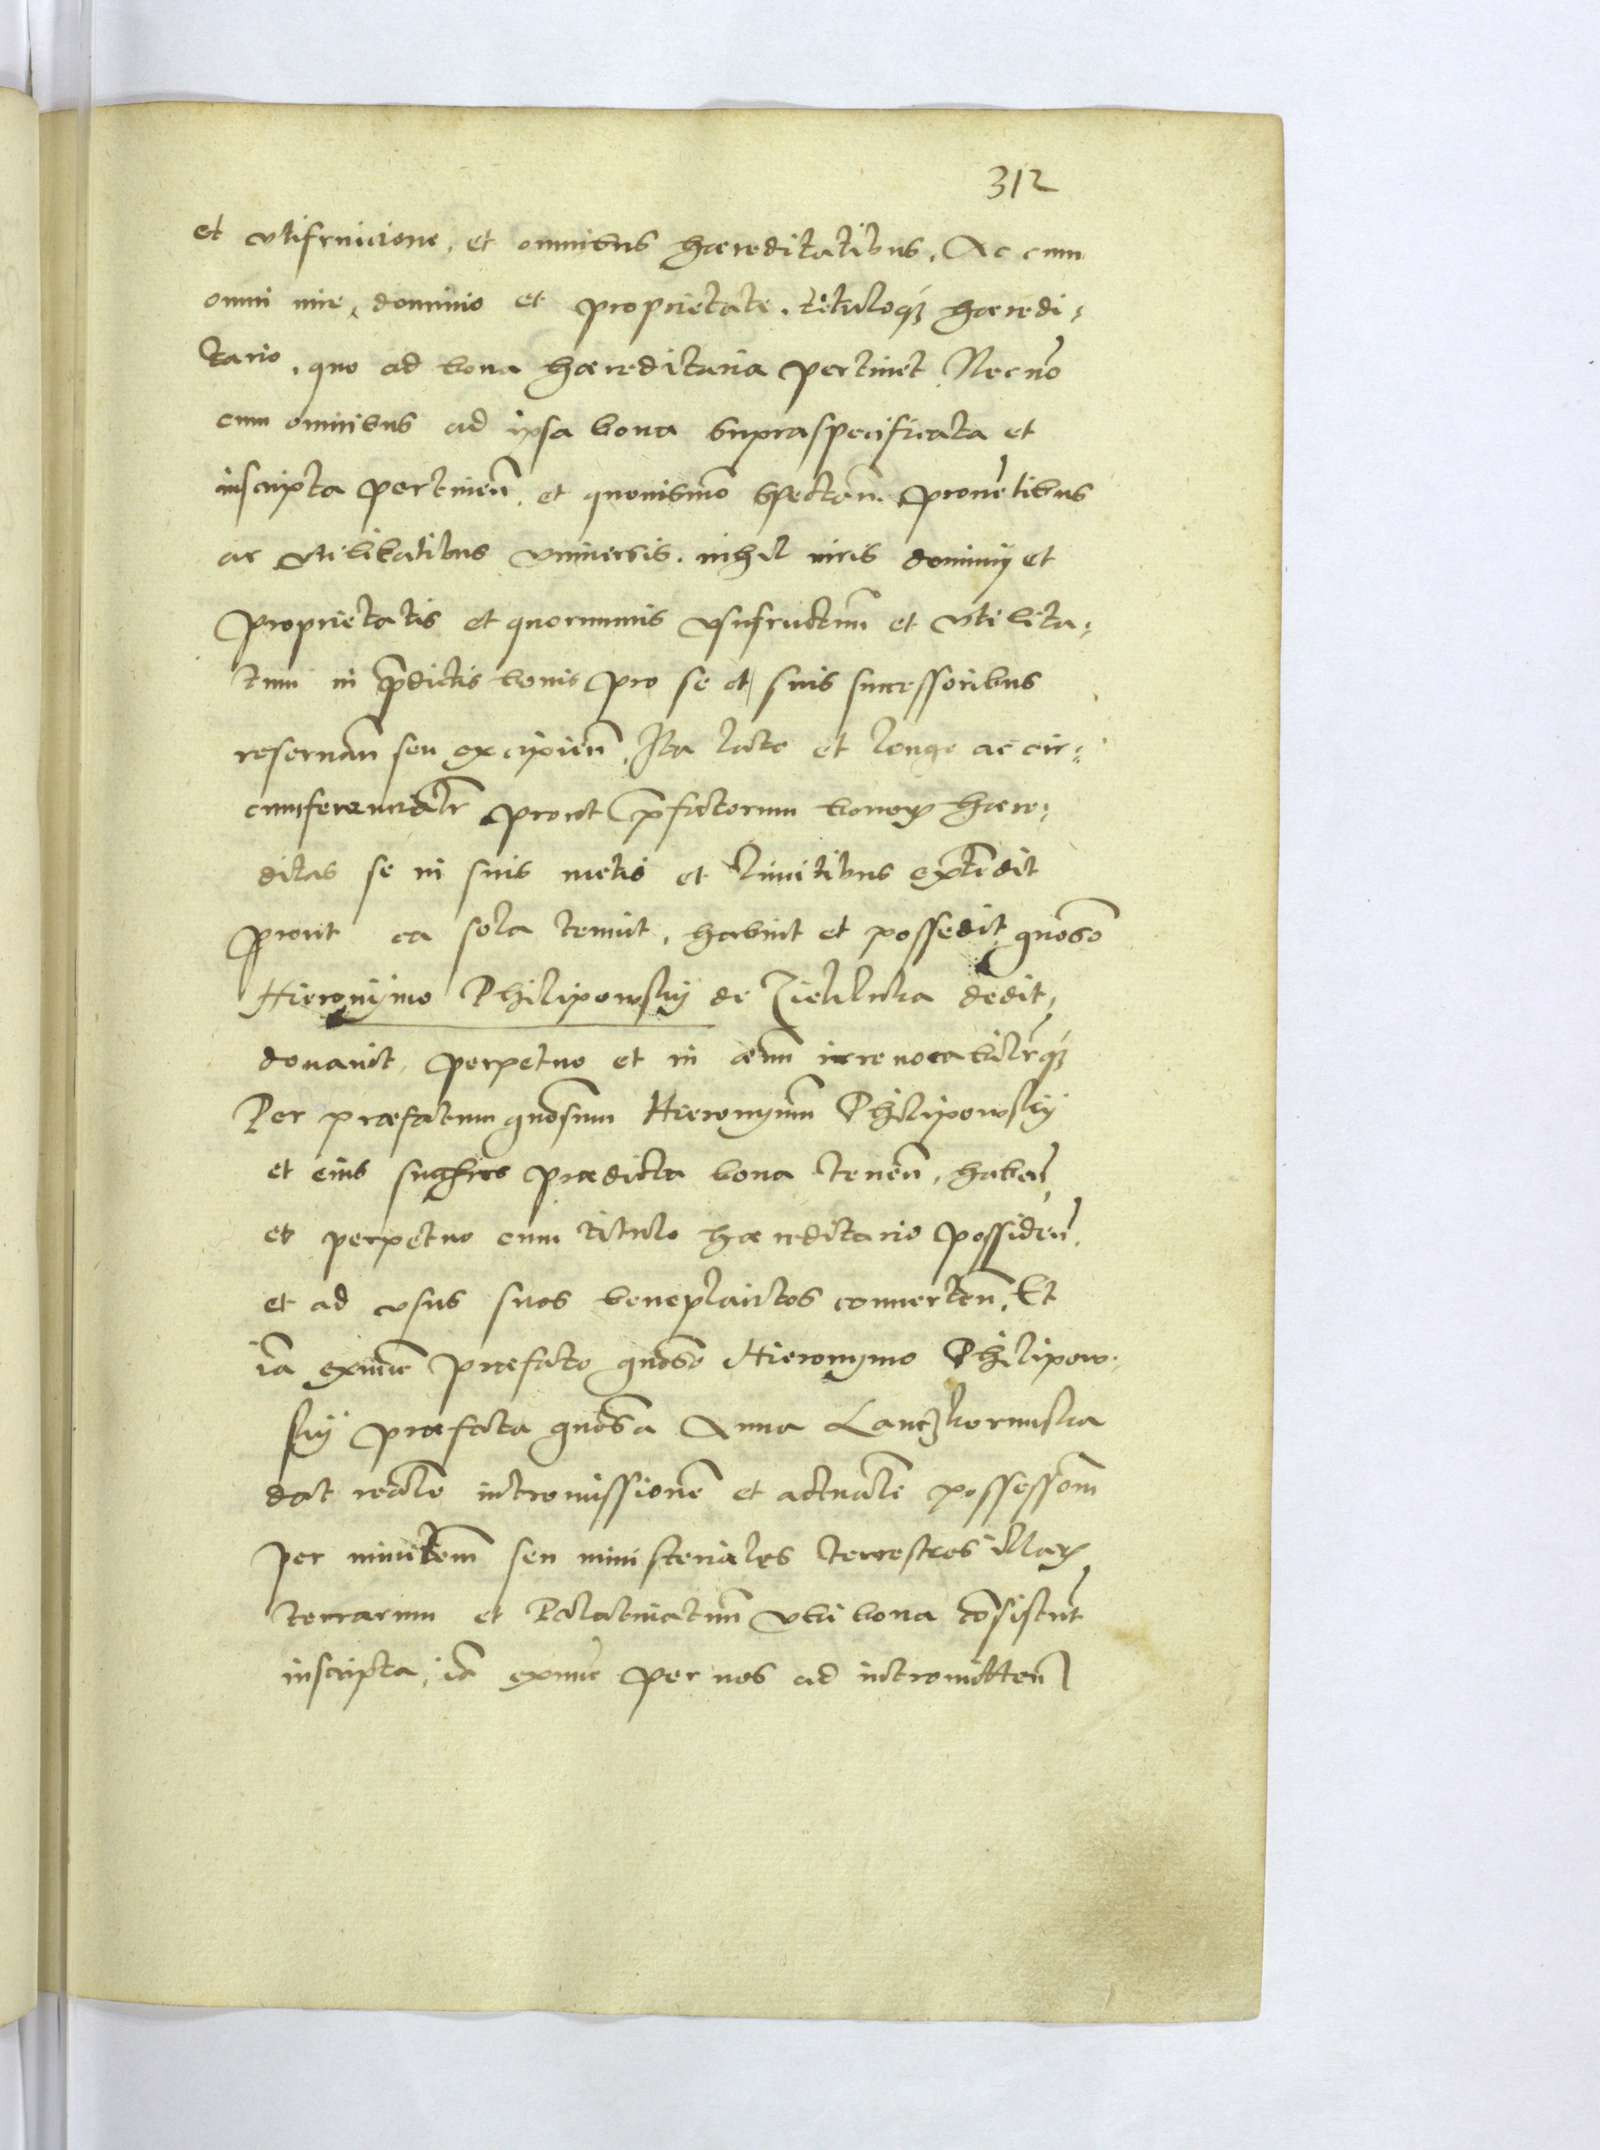 312
et vtifruicione, et omnibus hæreditatibus. Ac cum
omni iure, dominio et proprietate. tituloq̃ hæredi=
tario, quo ad bona hæreditaria pertinet. Necnō
cum omnibus ad ipsa bona supraspecificata et
inscripta pertineñ. et quouismō spectañ. prouētibus
ac vtilitatibus vniuersis. nihil iuris dominij et
proprietatis et quorumuis vsufructuū et vtilita=
tum in p̄dictis bonis pro se et suis successoribus
reseruañ seu excipieñ. Ita late et longe ac cir=
cumferencialr̃ prout p̄fatorum bonoꝝ hære=
ditas se in suis metis et limitibus extēdit
prout ea sola tenuit, habuit et possedit, gnōso
Hieronymo Philipowsky de Zielilnka dedit,
donauit, perpetuo et in æuū irreuocabilr̃q̃
Per præfatum gnōsum Hieronymū Philipowskij
et eius succhres prædicta bona teneñ, habeñ,
et perpetuo cum titulo hæreditario possideñ.
et ad vsus suos beneplacitos conuerteñ. Et
iā exnūc præfato gnōso Hieronymo Philipow=
skij præfata gnōsa Anna Lanczkoruńska
dat realē intromissionē et actualē possessōm
per minrm̃ seu ministeriales terrestres illaꝝ
terrarum et Palatinatuū vbi bona cōsistūt
inscripta, iā exnūc per nos ad intromitteñ